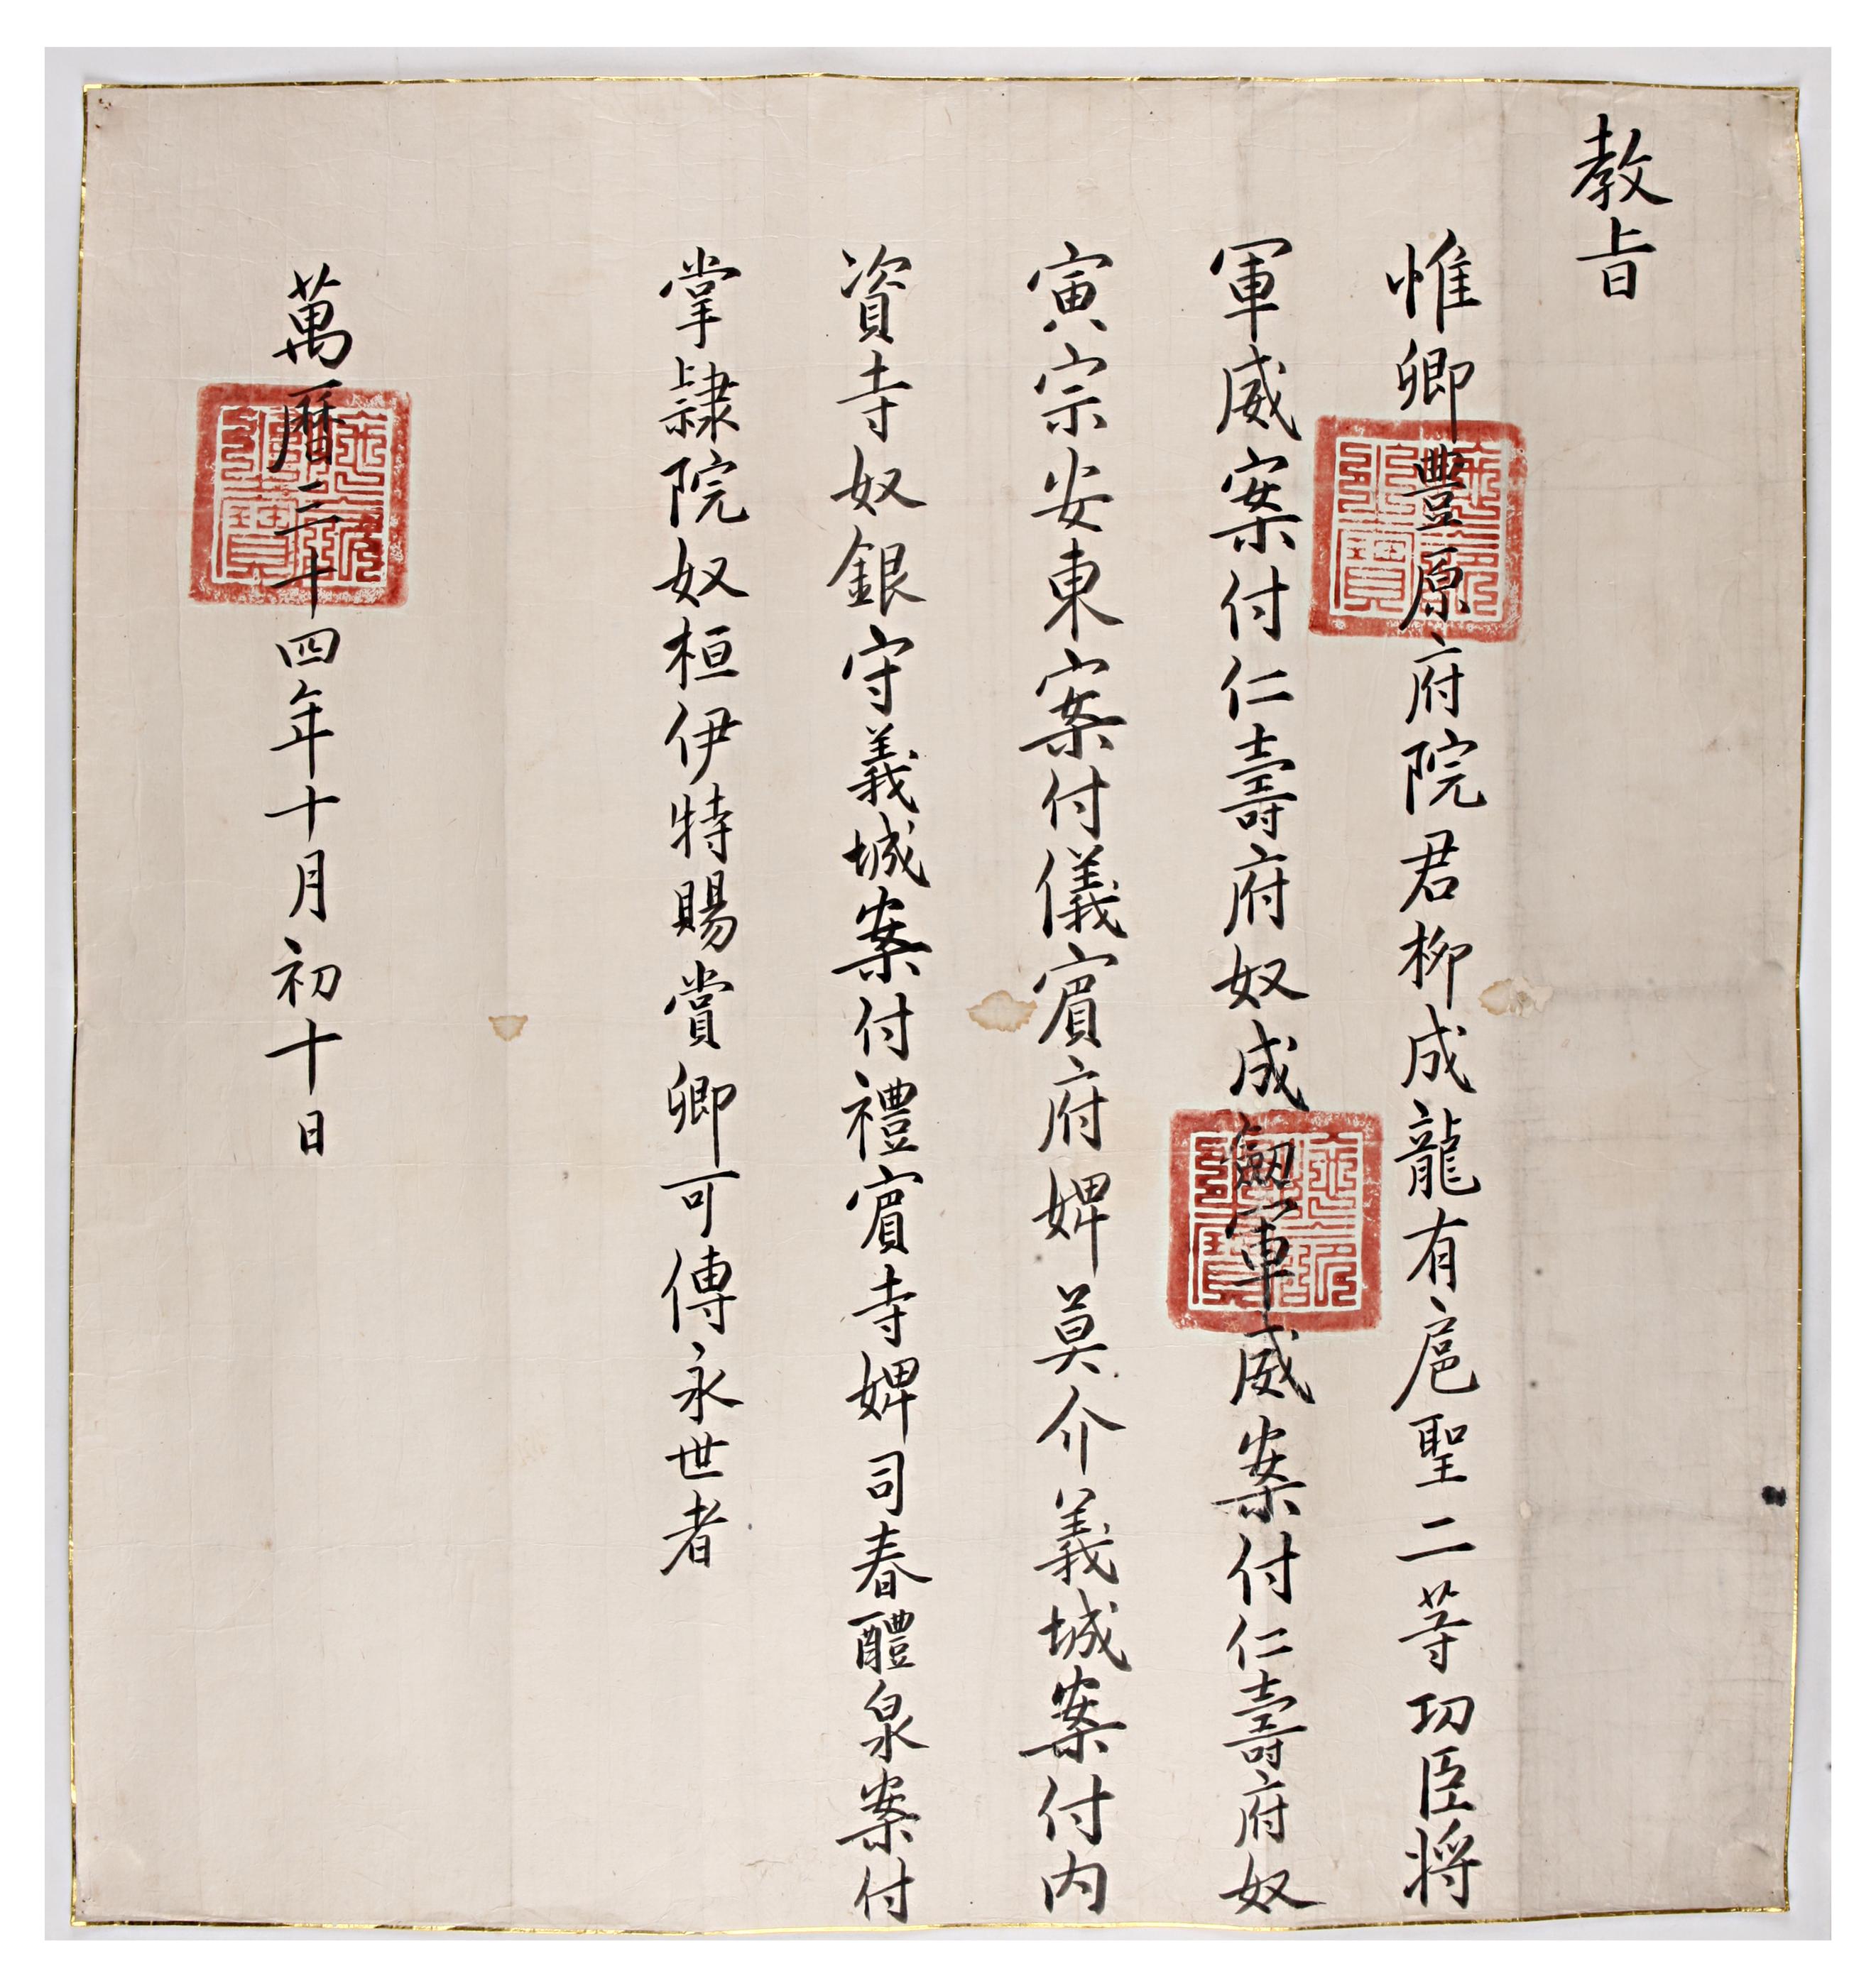 教旨
惟卿豊原府院君柳成龍有扈聖二等功臣将
軍威案付仁壽府奴成劒軍威案付仁壽府奴
寅宗安東案付儀賓府婢莫介義城案付内
資寺奴銀守義城案付禮賓寺婢司春醴泉案付
掌隷院奴桓伊特賜賞卿可傳永世者
萬曆三十四年十月初十日